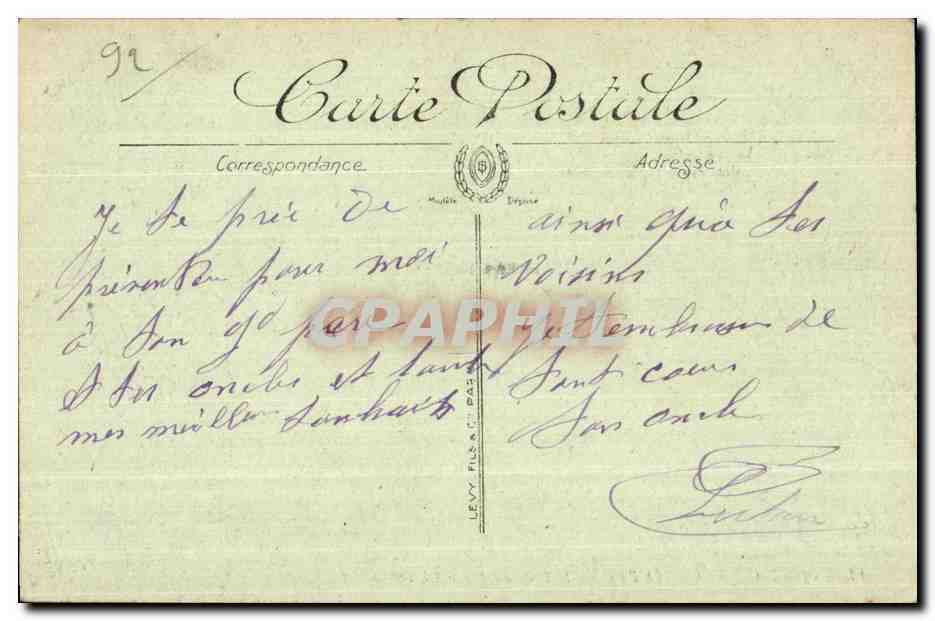 92
Carte Postale
Correspondance
Adresse
Modèle
Déposé
Je te prie de
présenter pour moi
à ton gd père
& tes oncles et tantes
mes meilleurs souhaits
ainsi qu'à tes
Voisins
Je t'embrasse de
tout coeur
Ton oncle
LEVY FILS & Cie PARIS
CPAPHIL